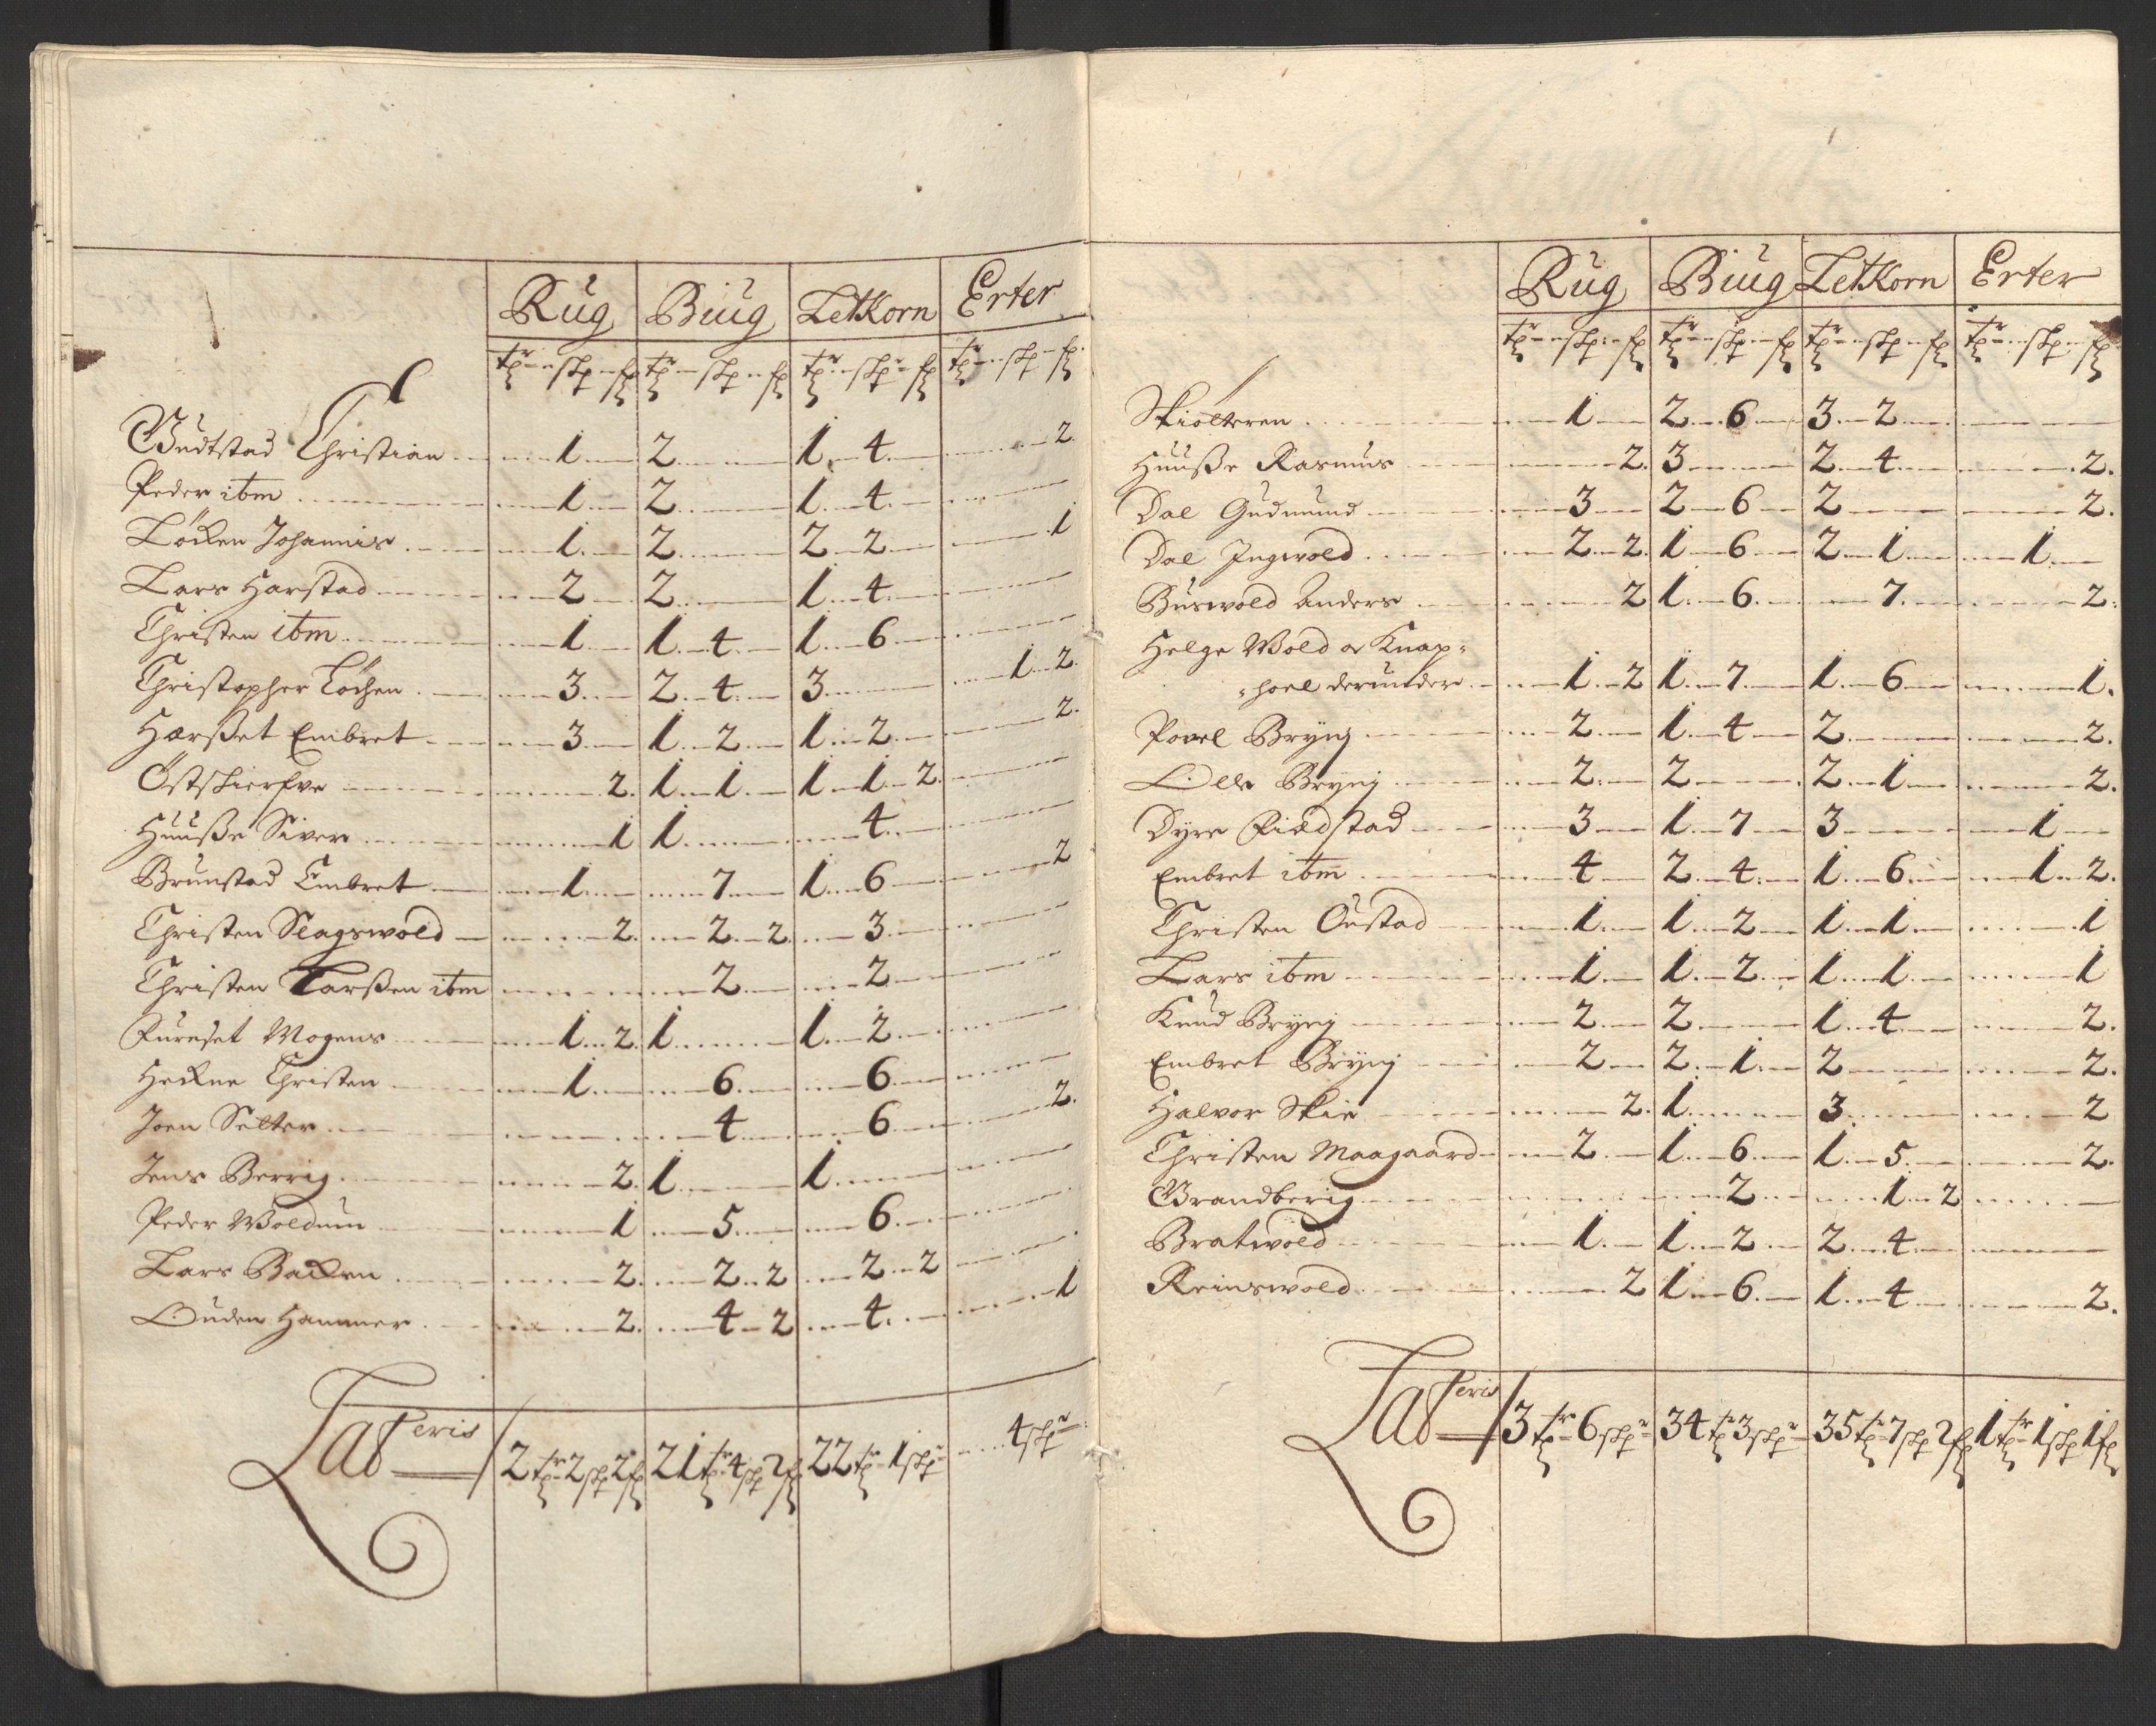 Rug Biug LetKorn Erter
tr skp fr tr skp fr tr skp fr tr skp fr
Budtstad Christian 1 2 1 4 2.
Peder ibm 1 2 1 4
Löcken Johannis 1 2 2 2 1
Lars Harstad 2 2 1 4
Christen ibm 1 1 4 1 6
Christopher Löchen 3 2 4 3 1 2.
Harßet Embret 3 1 2 1 2 2.
Östskierfve 2. 1 1 1 1 2.
Huuße Siver 1 1 4
Brunstad Embret 1 7 1 6 2
Christen Slagswold 2. 2 2. 3
Christen Larßen ibm 2 2
Furuset Mogens 1 2. 1 1 2
Heckne Christen 1 6 6
Joen Selter 4 6 2.
Jens Berrig 2. 1 1
Peder Woldum 1 5 6
Lars Backen 2. 2 2 2 2
Ouden Hammer 2. 4 2 4 1
Lateris 2 tr 2 skp 2 fr 21 tr 4 skp 2 fr 22 tr 1 skp 4 skpr
Rug Biug LetKorn Erter
tr skp fr tr skp fr tr skp fr tr skp fr
Skiolteren 1 2 6 3 2
Huuße Rasmus 2. 3 2 4 2.
Dal Gudmund 3 2 6 2 2.
Dal Ingwold 2 2. 1 6 2 1 1
Buswold Anders 2 1 6 7 2.
Helge Wold og Knap=
=hoel derunder 1 2 1 7 1 6 1.
Povel Bryng 2 1 4 2 2.
Olle Bryng 2 2 2 1 2.
Dyre Fiædstad 3 1 7 3 1
Embret ibm 4 2 4 1 6 1 2.
Christen Oustad 1 1 2 1 1 1
Lars ibm 1 1 2 1 1 1
Knud Bryng 2 2 1 4 2.
Embret Bryng 2 2 1 2 2.
Halvor Skie 2. 1 3 2
Christen Maagaard 2 1 6 1 5 2.
Brandberig 2 1 2
Bratwold 1 1 2 2 4
Reinswold 2 1 6 1 4 2.
Lateris 3 tr 6 skpr 34 tr 3 skpr 35 tr 7 skp 2 fr 1 tr 1 skp 1 fr